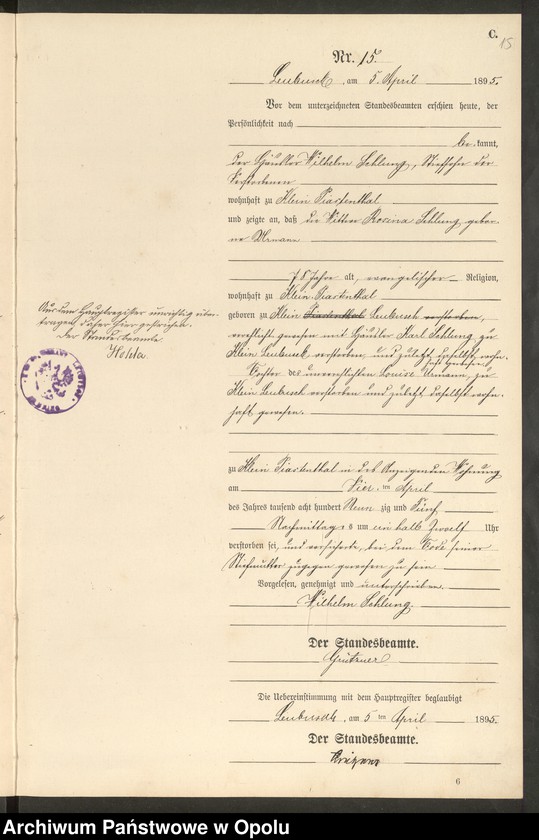 C.
15
Nr. 15.
Leubusch, am 5. April 1895.
Vor dem unterzeichneten Standesbeamten erschien heute, der
Persönlichkeit nach
bekannt,
der Häusler Wilhelm Schlung, Stiefsohn der
Verstorbenen
wohnhaft zu Klein Piastenthal
und zeigte an, daß die Wittwe Rosina Schlung gebor-
ne Urmann
78 Jahre alt, evangelischer Religion,
wohnhaft zu Klein Piastenthal
geboren zu Klein Piastenthal Leubusch verstorben,
verehelicht gewesen mit Häusler Karl Schlung zu
Klein Leubusch, verstorben und zuletzt daselbst wohn-
haft gewesen
Tochter des unverehelichten Louise Urmann, zu
Klein Leubusch verstorben und zuletzt daselbst wohn-
haft gewesen.
zu Klein Piastenthal in des Anzeigenden Wohnung
am Vier ten April
des Jahres tausend acht hundert Neun zig und Fünf
Nachmittags um ein halb Zwölf Uhr
verstorben sei, und versicherte, bei dem Tode seiner
Stiefmutter zugegen gewesen zu sein
Vorgelesen, genehmigt und unterschrieben.
Wilhelm Schlung.
Der Standesbeamte.
Grützner
Die Uebereinstimmung mit dem Hauptregister beglaubigt
Leubusch, am 5 ten April 1895.
Der Standesbeamte.
Aus dem Hauptregister unrichtig über-
tragen daher hier gestrichen.
Der Standesbeamte
6
Archiwum Państwowe w Opolu